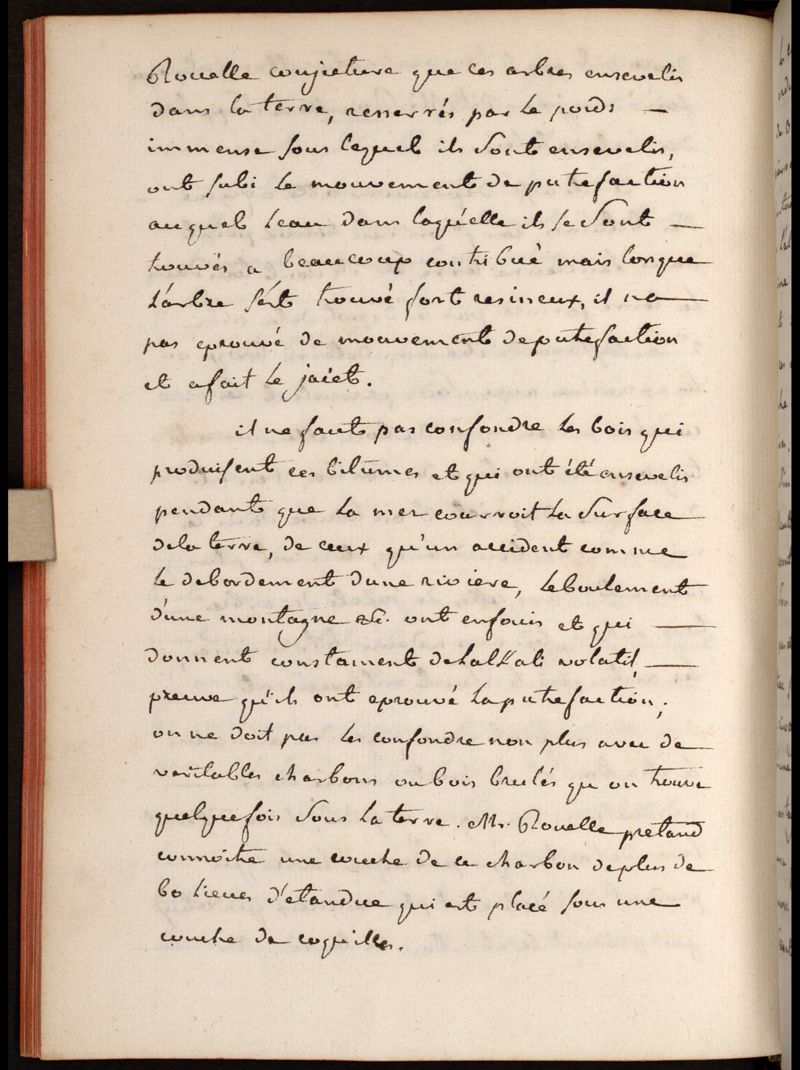 Rouelle conjecture que ces arbres ensevelis
dans la terre, resserrés par le poids —
immense sous lequel ils sont ensevelis,
ont subi le mouvement de putrefaction
auquel leau dans laquelle ils se sont —
trouvés a beaucoup contribué mais lorsque
l'arbre s'est trouvé fort resineux, il na —
pas eprouvé de mouvement de putrefaction
et a fait le jaïet.
il ne faut pas confondre les bois qui
produisent ces bitumes et qui ont été ensevelis
pendant que la mer couvroit la surface
de la terre, de ceux qu'un accident comme
le debordement dune riviere, leboulement
d'une montagne &c. ont enfouis et qui —
donnent constament de lalkali volatil, —
preuve qu'ils ont eprouvé la putrefaction;
on ne doit pas les confondre non plus avec de
veritables charbons ou bois brulés qu on trouve
quelquefois sous la terre. Mr. Rouelle pretend
connoitre une couche de ce charbon de plus de
60 lieues d'etandue qui est placé sous une
couche de coquilles.